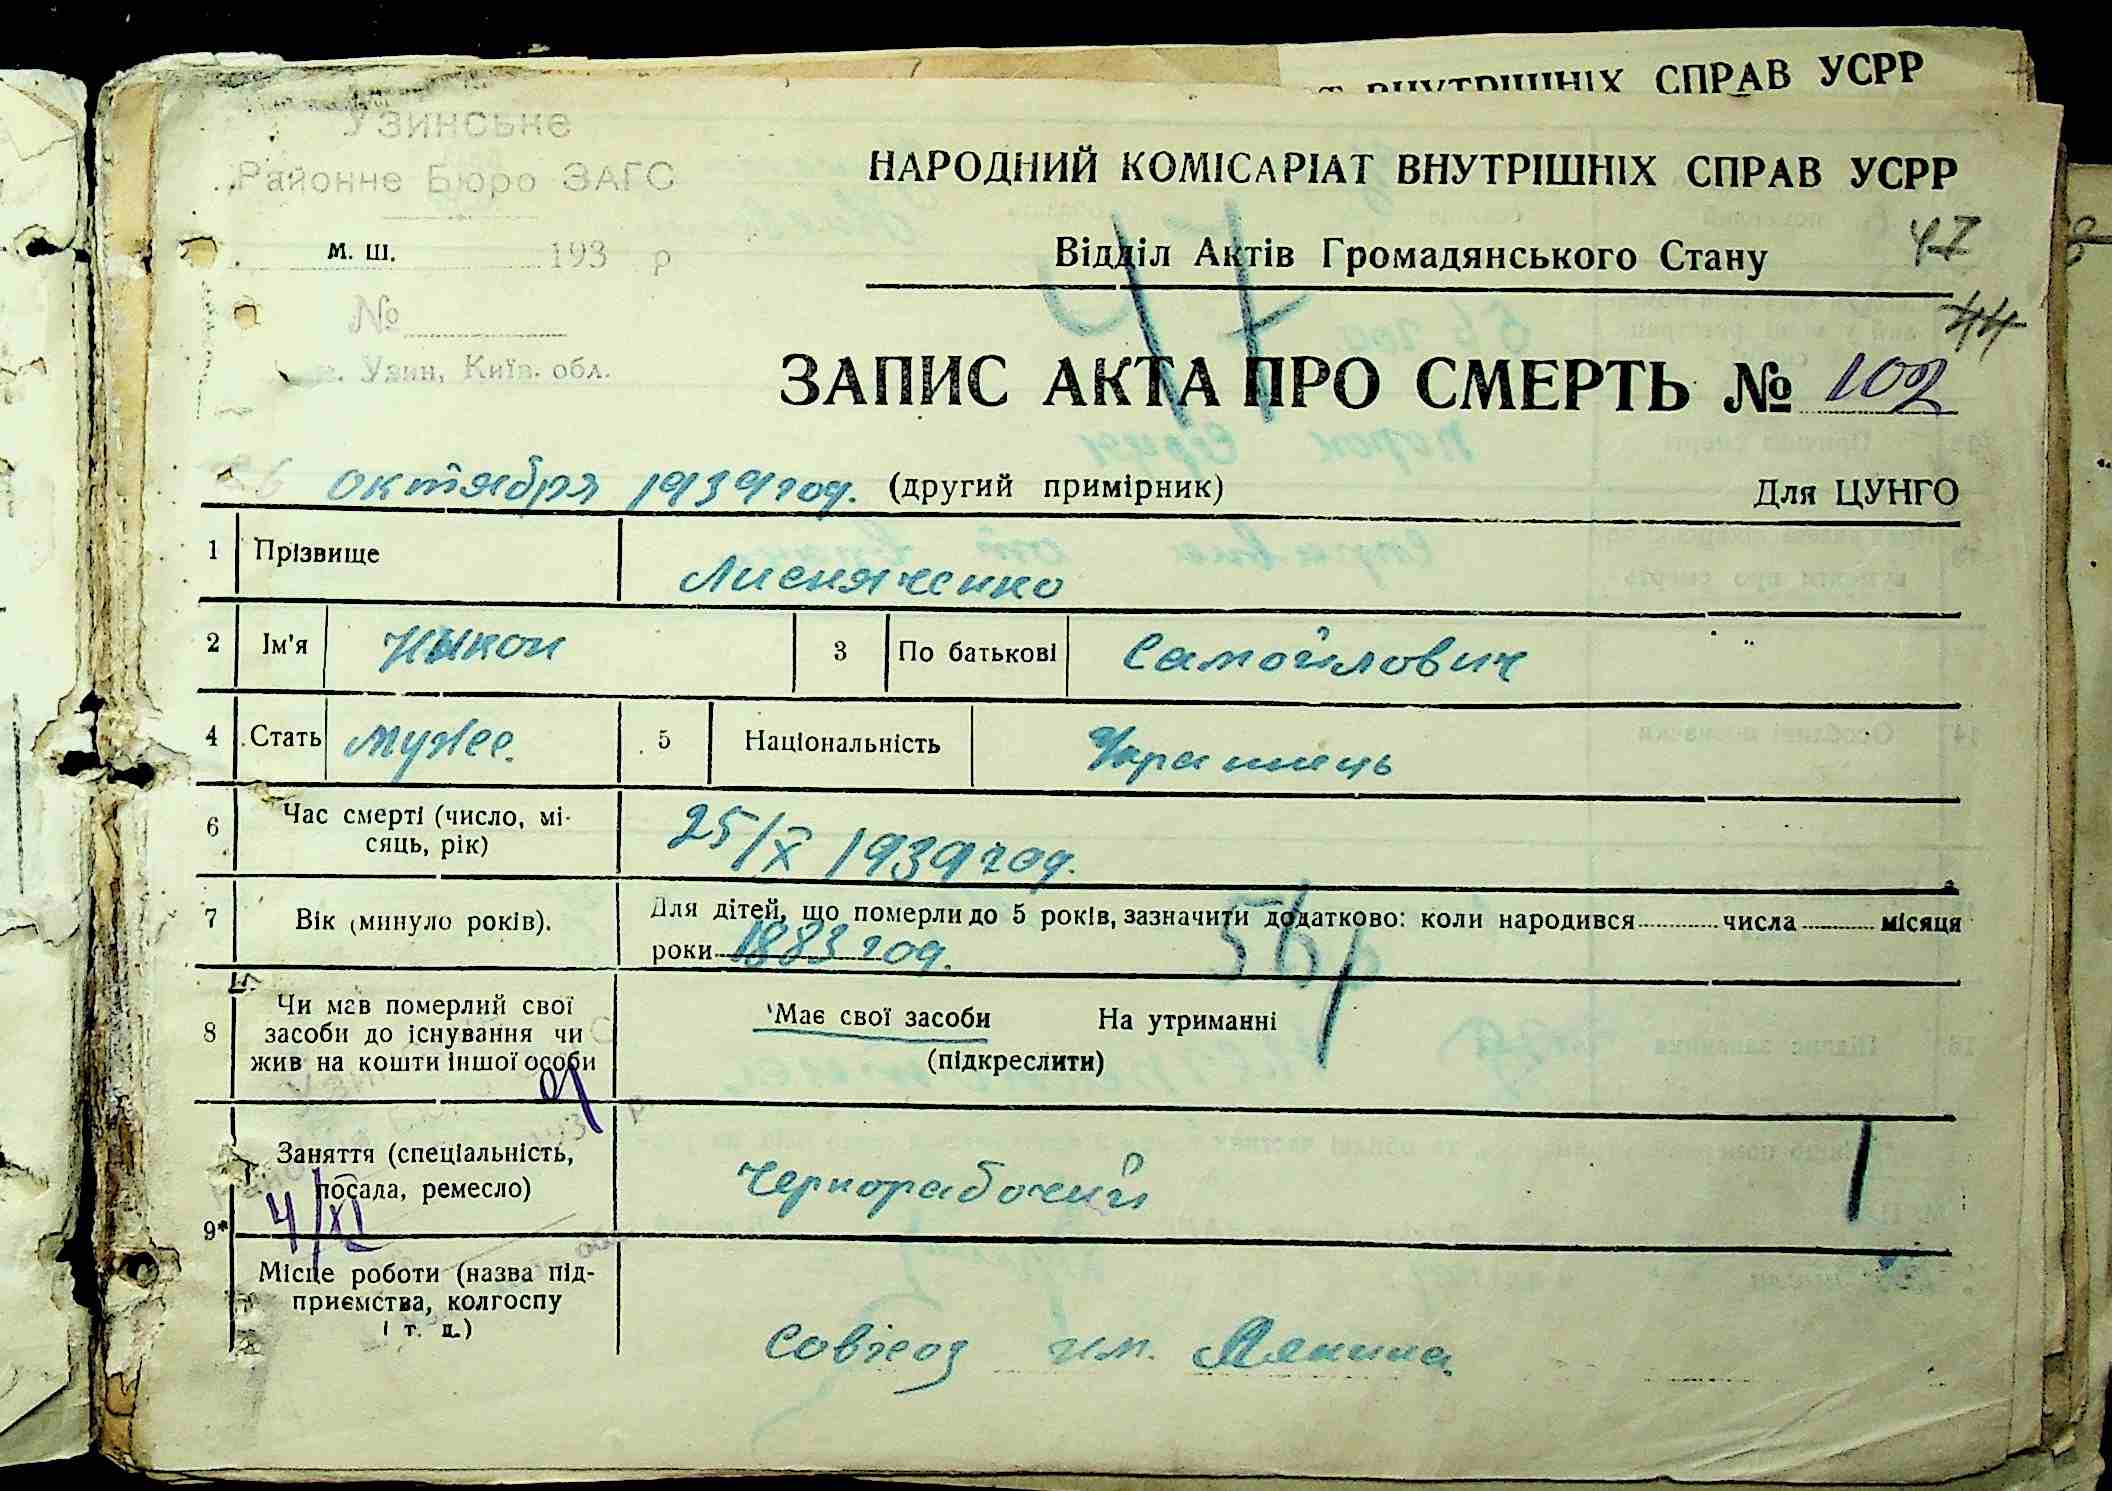 ВНУТРІШНІХ СПРАВ УСРР
Узинське
Районне Бюро ЗАГС
НАРОДНИЙ КОМІСАРІАТ ВНУТРІШНІХ СПРАВ УСРР
м. ш. 193 р
Відділ Актів Громадянського Стану
47
№
44
м. Узин, Київ. обл.
ЗАПИС АКТА ПРО СМЕРТЬ № 102
26 октября 1939 год. (другий примірник) Для ЦУНГО
1 Прізвище Лисняченко
2 Ім'я Никон 3 По батькові Самойлович
4 Стать мужс. 5 Національність Украинець
6 Час смерті (число, мі-
сяць, рік) 25/X 1939 год.
7 Вік (минуло років). Для дітей, що померли до 5 років, зазначити додатково: коли народився числа місяця
роки 1883 год. 56
8 Чи мав померлий свої
засоби до існування чи
жив на кошти іншої особи
Має свої засоби На утриманні
(підкреслити)
9* Заняття (спеціальність,
посада, ремесло) Чернорабочий
4/XI
Місце роботи (назва під-
приємства, колгоспу
і т. д.)
Совхоз им. Ленина